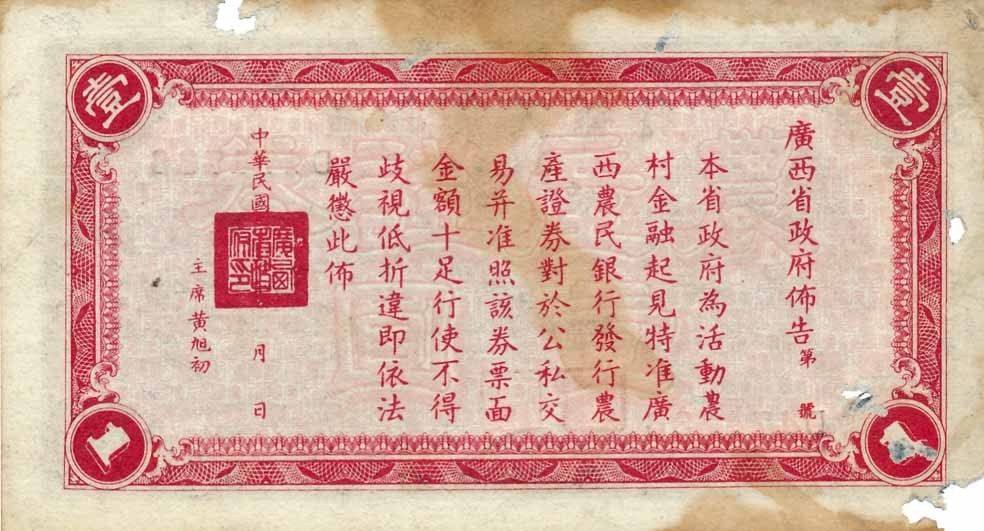 壹
壹
廣西省政府佈告第 號
本省政府為活動農
村金融起見特准廣
西農民銀行發行農
產證券對於公私交
易并准照該券票面
金額十足行使不得
歧視低折違即依法
嚴懲此佈
中華民國 月 日
廣西省政府印
主席 黃旭初
1
1